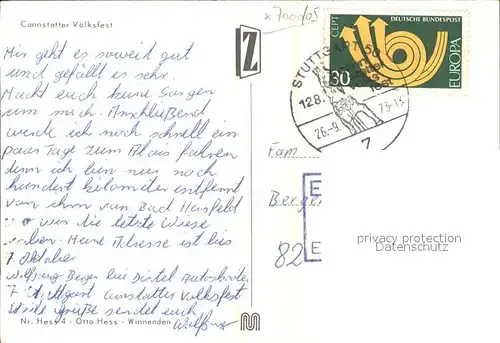 Cannstatter Volksfest
x 7000/05
Mir geht es soweit gut
und gefällt es sehr.
Macht euch keine Sorgen
um mich. Anschließend
werde ich noch schnell ein
paar Tage zum Alois fahren
denn ich bin nur noch
hundert kilometer entfernt
von ihm von Bad Hersfeld
wo wir die letzte Wiese
haben. Meine Adresse ist bis
7. Oktober
Wolfgang Berger bei Distel Autoskooter
7 Stuttgart Cannstatter Volksfest
viele grüße sendet euch
Nr. Hess 4 - Otto Hess - Winnenden
Z
CEPT
DEUTSCHE BUNDESPOST
30
EUROPA
STUTTGART 50
128.
26.-9.
73-13
7
Fam
Berger
82
E
E
privacy protection
Datenschutz